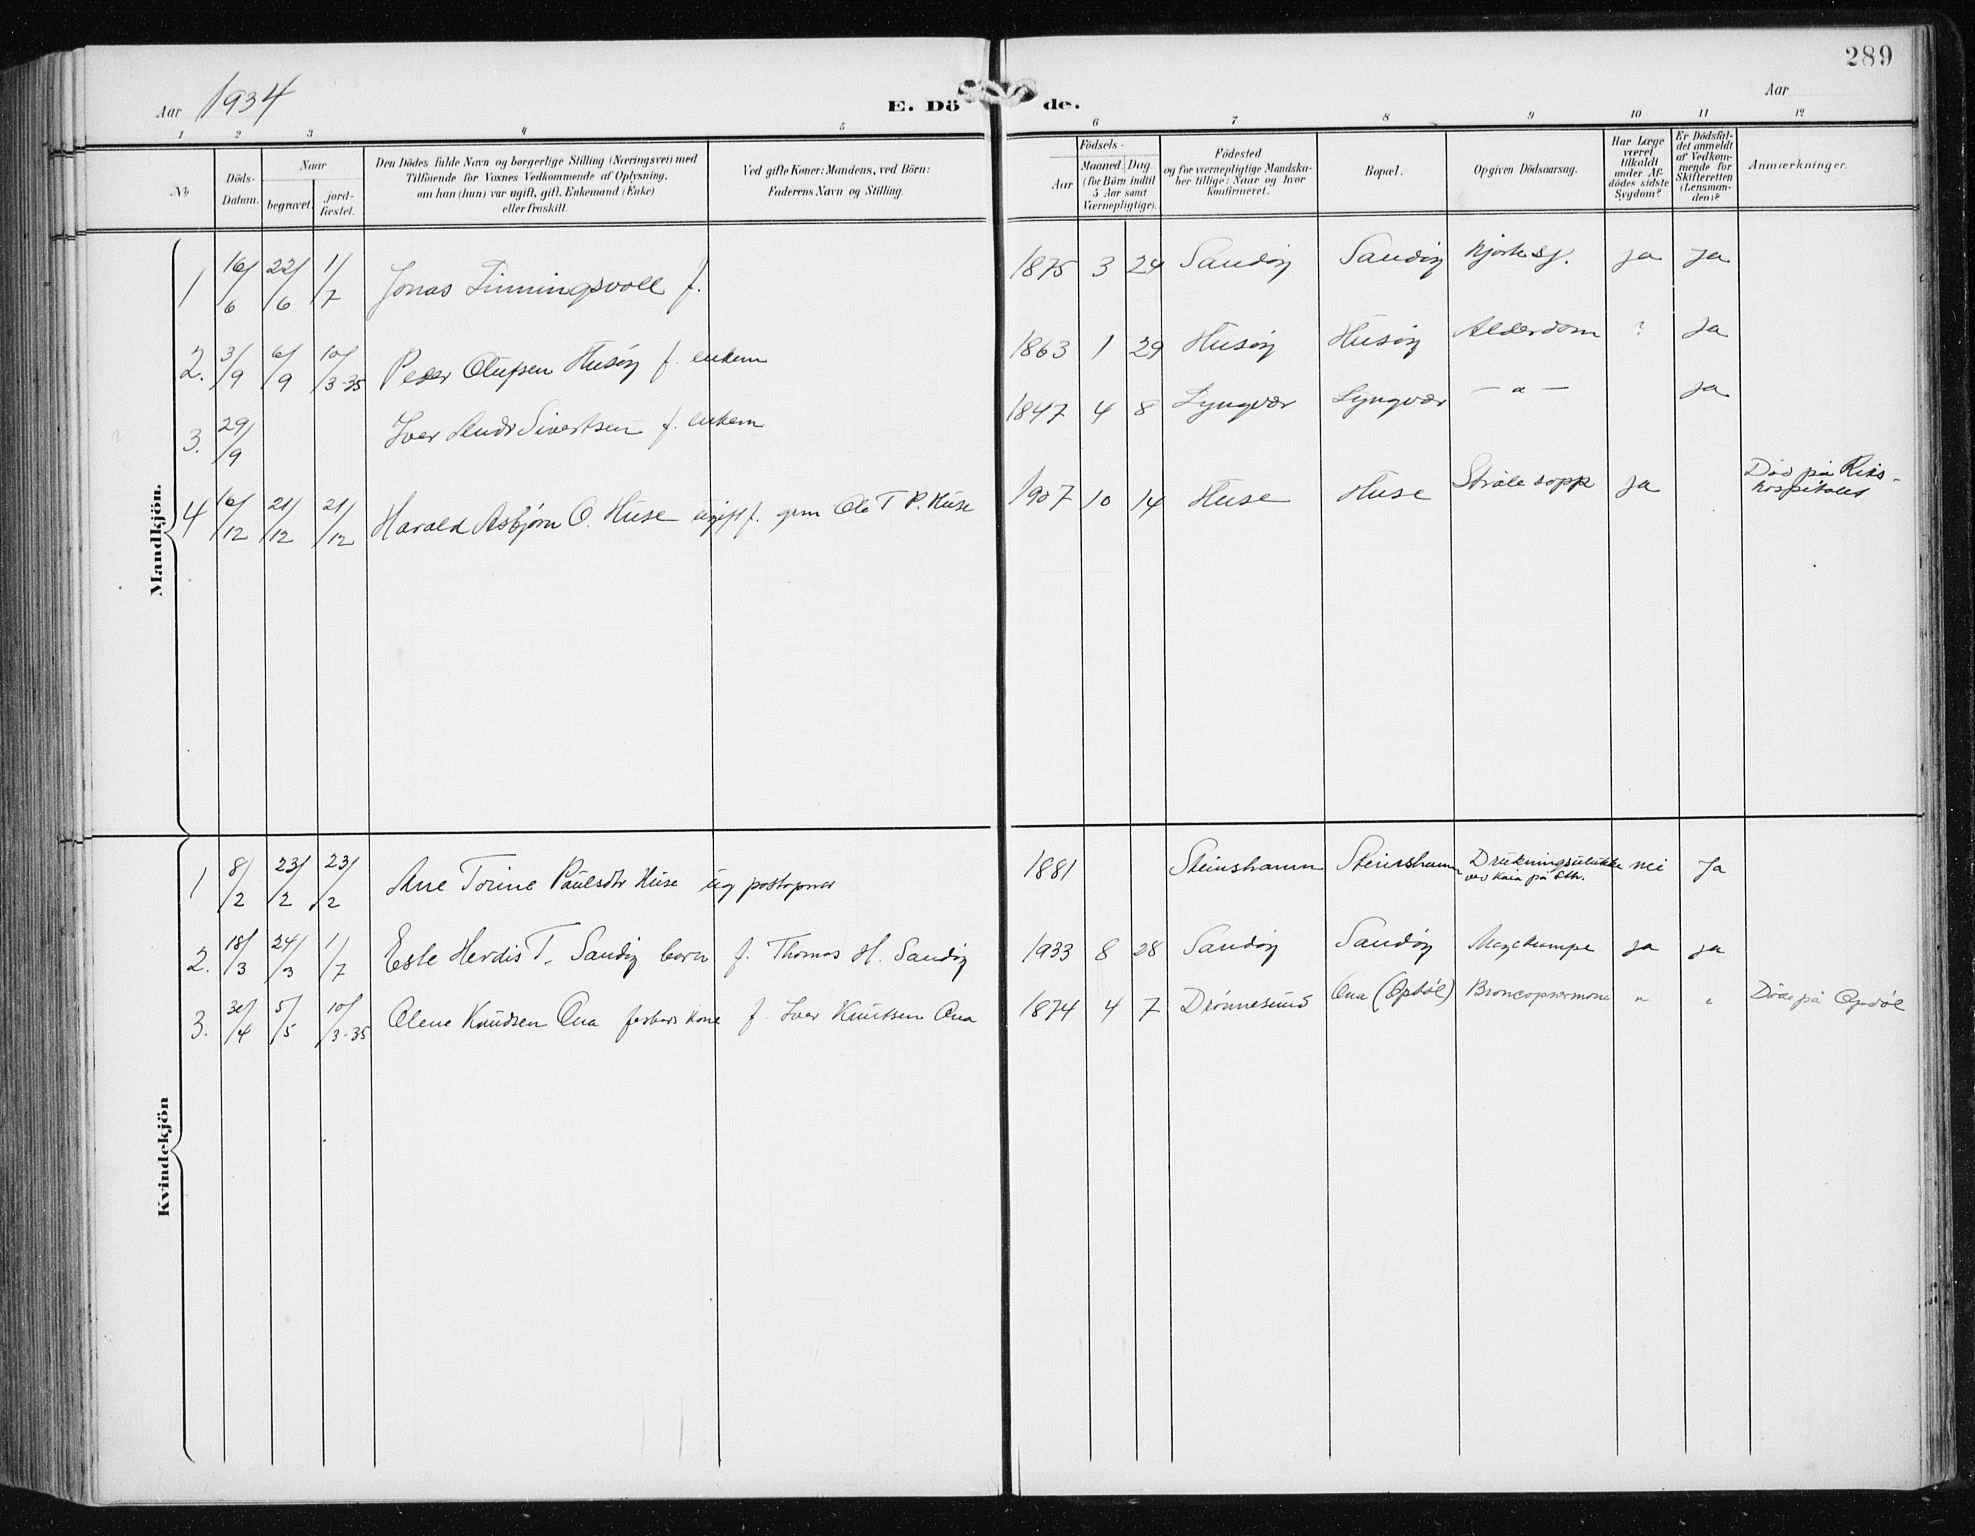 289
Aar 1934
E. Dö de.
Aar
1 2 3 4 5 6 7 8 9 10 11 12
No
Döds-
Datum.
Naar
begravet.
jord-
fæstet.
Den Dödes fulde Navn og borgerlige Stilling (Næringsvei) med
Tilföiende for Voxnes Vedkommende af Oplysning,
om han (hun) var ugift, gift, Enkemand (Enke)
eller fraskilt.
Ved gifte Koner: Mandens, ved Börn:
Faderens Navn og Stilling.
Födsels-
Aar
Maaned. Dag
(for Börn indtil
5 Aar samt
Værnepligtige).
Födested
og for værnepligtige Mandska-
ber tillige: Naar og hvor
konfirmeret.
Bopæl.
Opgiven Dödsaarsag.
Har Læge
været
tilkaldt
under Af-
dödes sidste
Sygdom?
Er Dödsfal-
det anmeldt
af Vedkom-
mende for
Skifteretten
(Lensman-
den)?
Anmærkninger.
Mandkjön.
1 16/6 22/6 1/7 Jonas Finningsvoll f. 1875 3 24 Sandøy Sandøy Hjertesj. ja ja
2. 3/9 6/9 10/3-35 Peder Olufsen Husøy f. enkem 1863 1 29 Husøy Husøy Alderdom ? ja
3. 29/9 Iver Andr Sivertsen f. enkem 1847 4 8 Lyngvær Lyngvær — " — ja
4 16/12 21/12 21/12 Harald Asbjørn O. Huse ugift f. grm Ole T P. Huse 1907 10 14 Huse Huse Stråle sopp ja Død på Riks-
hospitalet
Kvindekjön
1 8/2 23/2 23/2 Ane Torine Paulsdtr Huse ug postopner 1881 Steinshamn Steinshamn Drukningsulukke nei Ja
ved kaia på Sth.
2. 18/3 24/3 1/7 Esle Herdis T. Sandøy barn f. Thomas H. Sandøy 1933 8 28 Sandøy Sandøy Magekrampe ja ja
3. 30/4 5/5 10/3-35 Olene Knudsen Ona forhv kone f. Iver Knutsen Ona 1874 4 7 Drønnesund Ona (Opdøl) Broncopnevmone " " Død på Opdøl